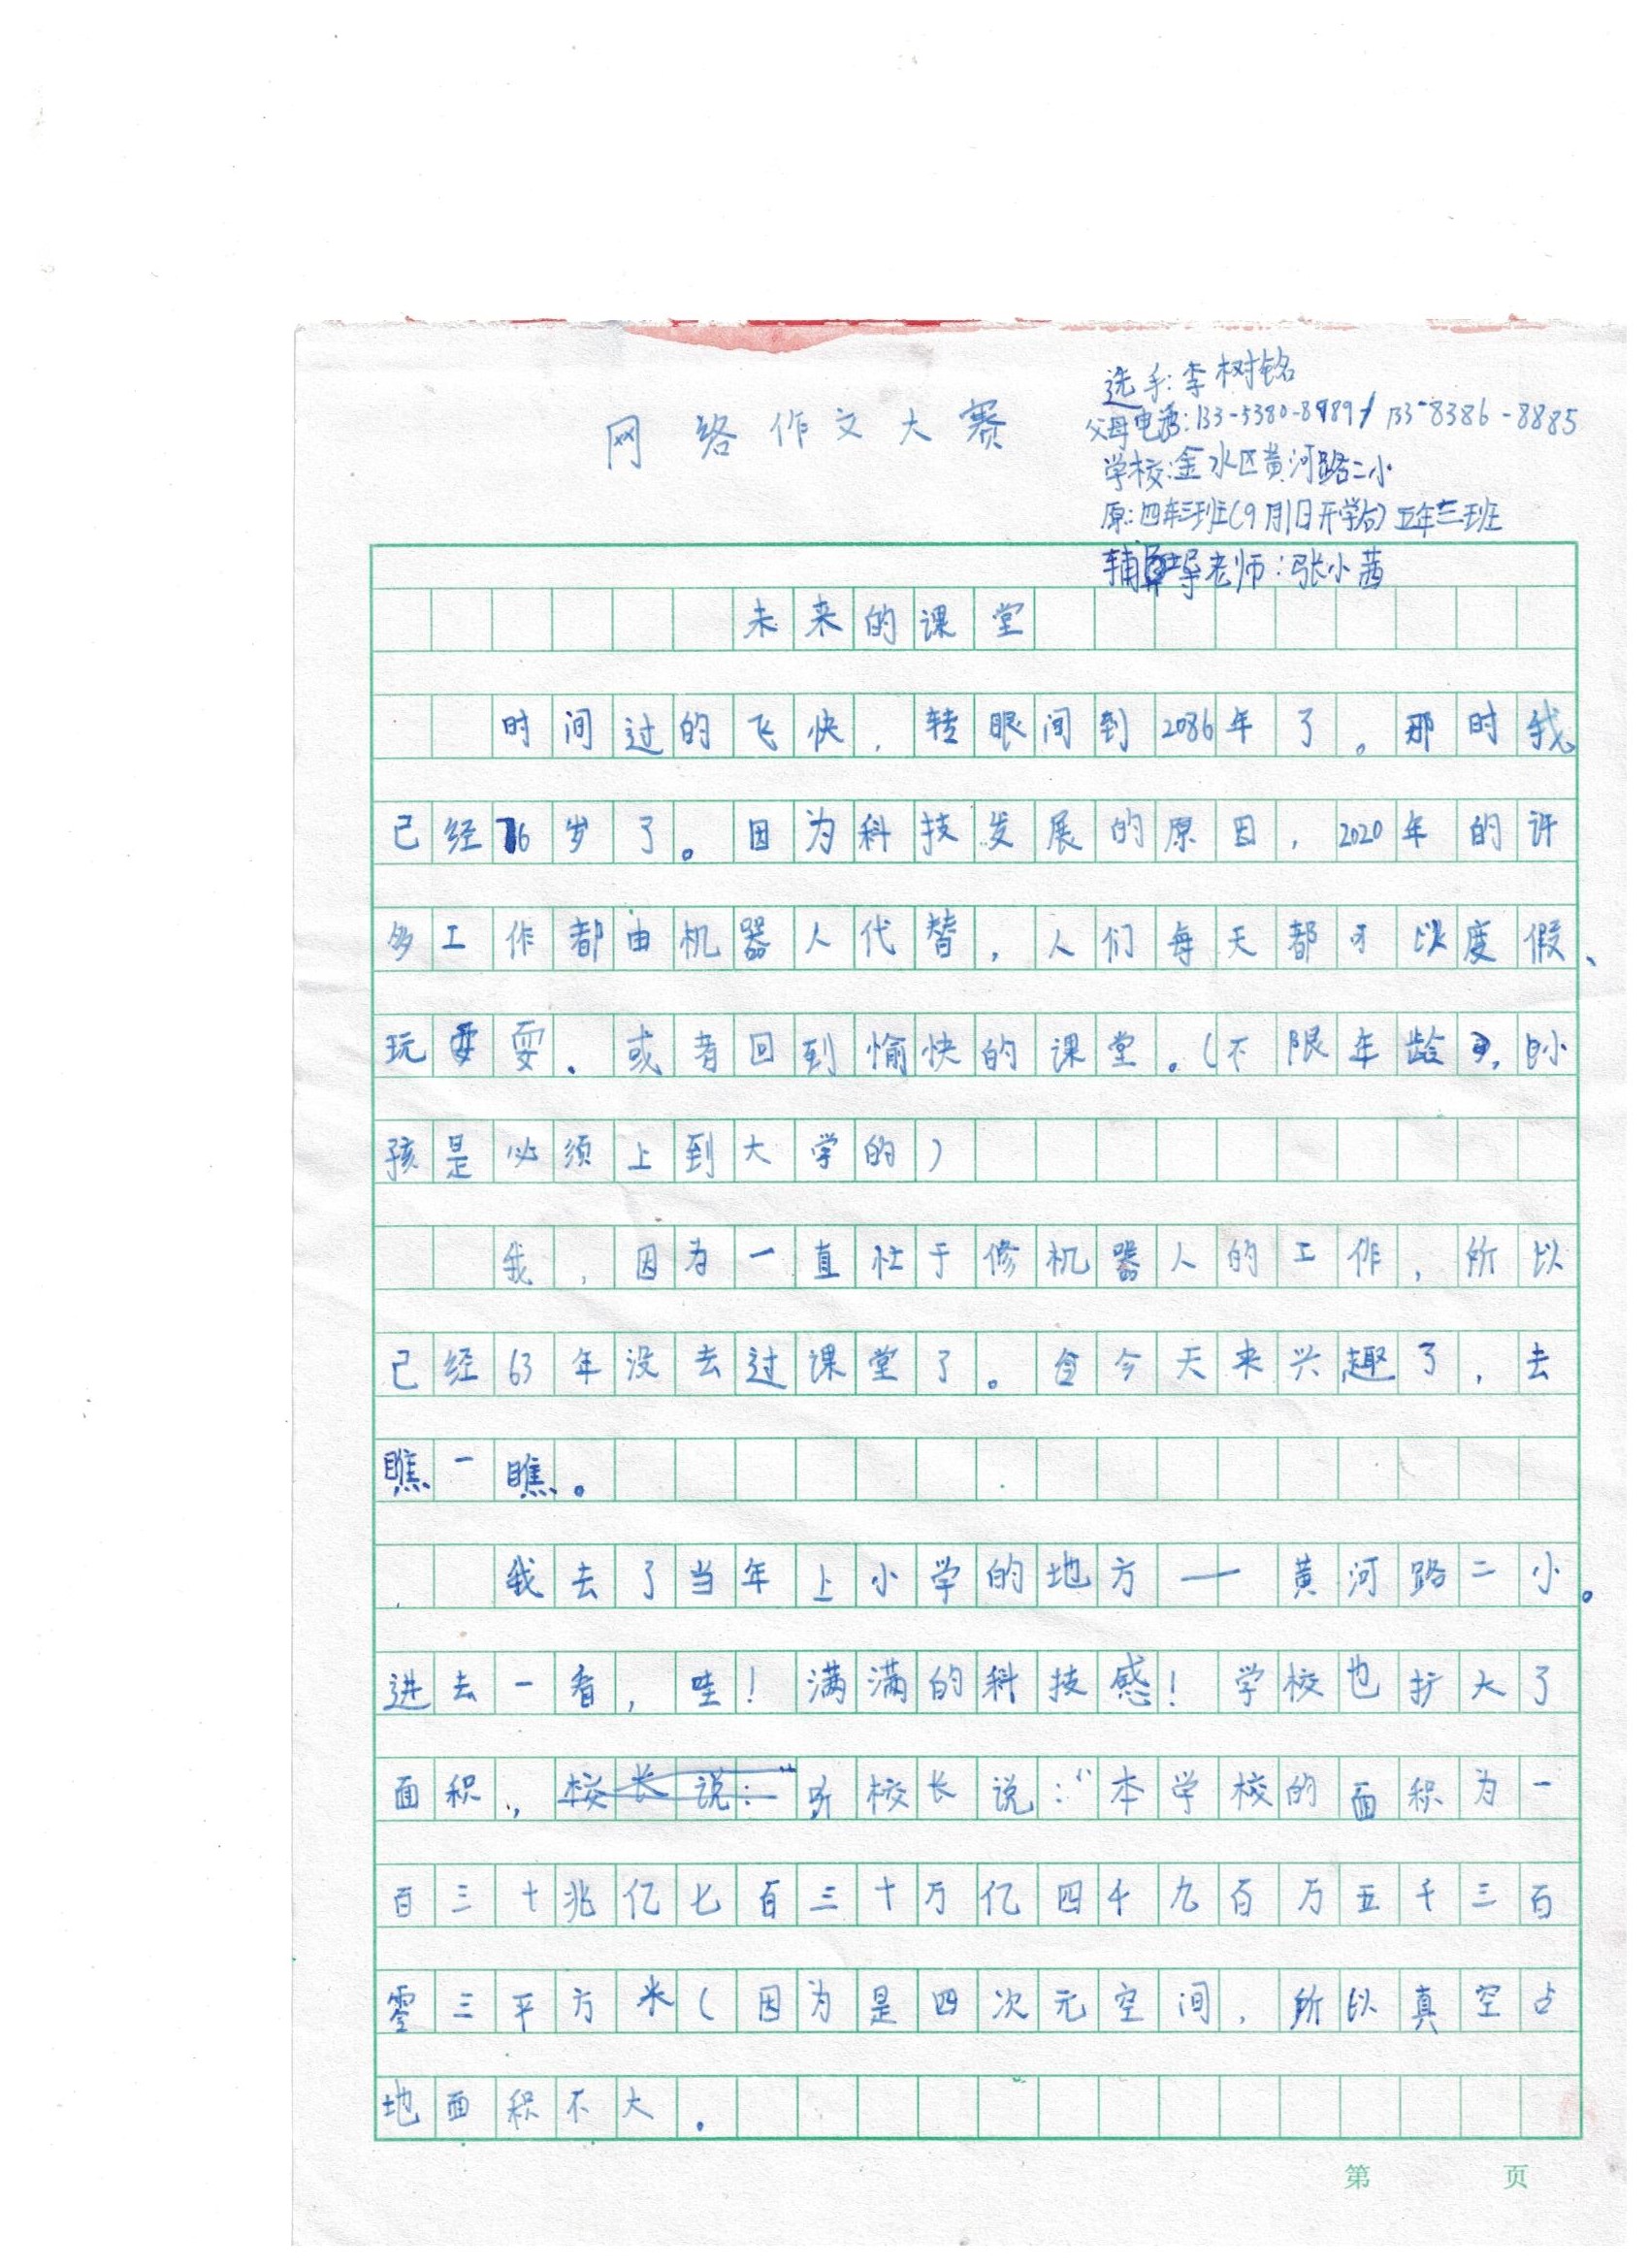 选手：李树铭
网络作文大赛
父母电话：133-5380-8989/133-8386-8885
学校：金水区黄河路二小
原：四年三班（9月1日开学后）五年三班
辅导老师：张小茜
未来的课堂
时间过的飞快，转眼间到2086年了。那时我
已经76岁了。因为科技发展的原因，2020年的许
多工作都由机器人代替，人们每天都可以度假、
玩耍．或者回到愉快的课堂。（不限年龄，小
孩是必须上到大学的）
我，因为一直忙于修机器人的工作，所以
已经63年没去过课堂了。今天来兴趣了，去
瞧一瞧。
我去了当年上小学的地方——黄河路二小。
进去一看，哇！满满的科技感！学校也扩大了
面积，校长说：“听校长说：“本学校的面积为一
百三十兆亿七百三十万亿四千九百万五千三百
零三平方米（因为是四次元空间，所以真空占
地面积不大．
第 页